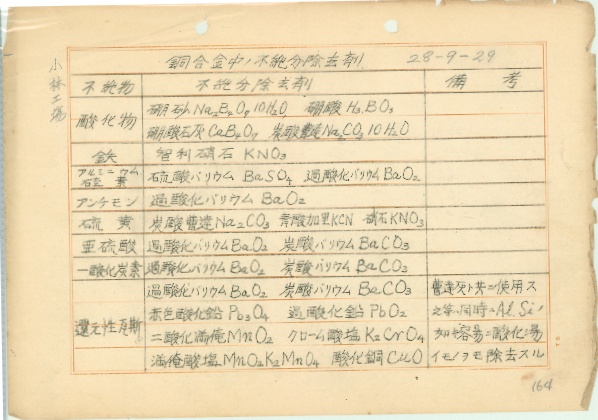 小林工場
銅合金中ノ不純分除去剤 28-9-29
不純物 不純分除去剤 備考
酸化物 硼砂 Na₂B₄O₇10H₂O 硼酸 H₃BO₃
硼酸石灰 CaB₄O₇ 炭酸曹達 Na₂CO₃10H₂O
鉄 智利硝石 KNO₃
アルミニウム
硅素 硫酸バリウム BaSO₄ 過酸化バリウム BaO₂
アンチモン 過酸化バリウム BaO₂
硫黄 炭酸曹達 Na₂CO₃ 青酸加里 KCN 硝石 KNO₃
亜硫酸 過酸化バリウム BaO₂ 炭酸バリウム BaCO₃
一酸化炭素 過酸化バリウム BaO₂ 炭酸バリウム BaCO₃
還元性瓦斯 過酸化バリウム BaO₂ 炭酸バリウム BaCO₃ 曹達灰ト共ニ使用ス
赤色酸化鉛 Pb₃O₄ 過酸化鉛 PbO₂ 之等ハ同時ニ Al. Si ノ
二酸化満俺 MnO₂ クローム酸塩 K₂CrO₄ 如キ容易ニ酸化シ易
満俺酸塩 MnO₂K₂MnO₄ 酸化銅 CuO イモノヲモ除去スル
164